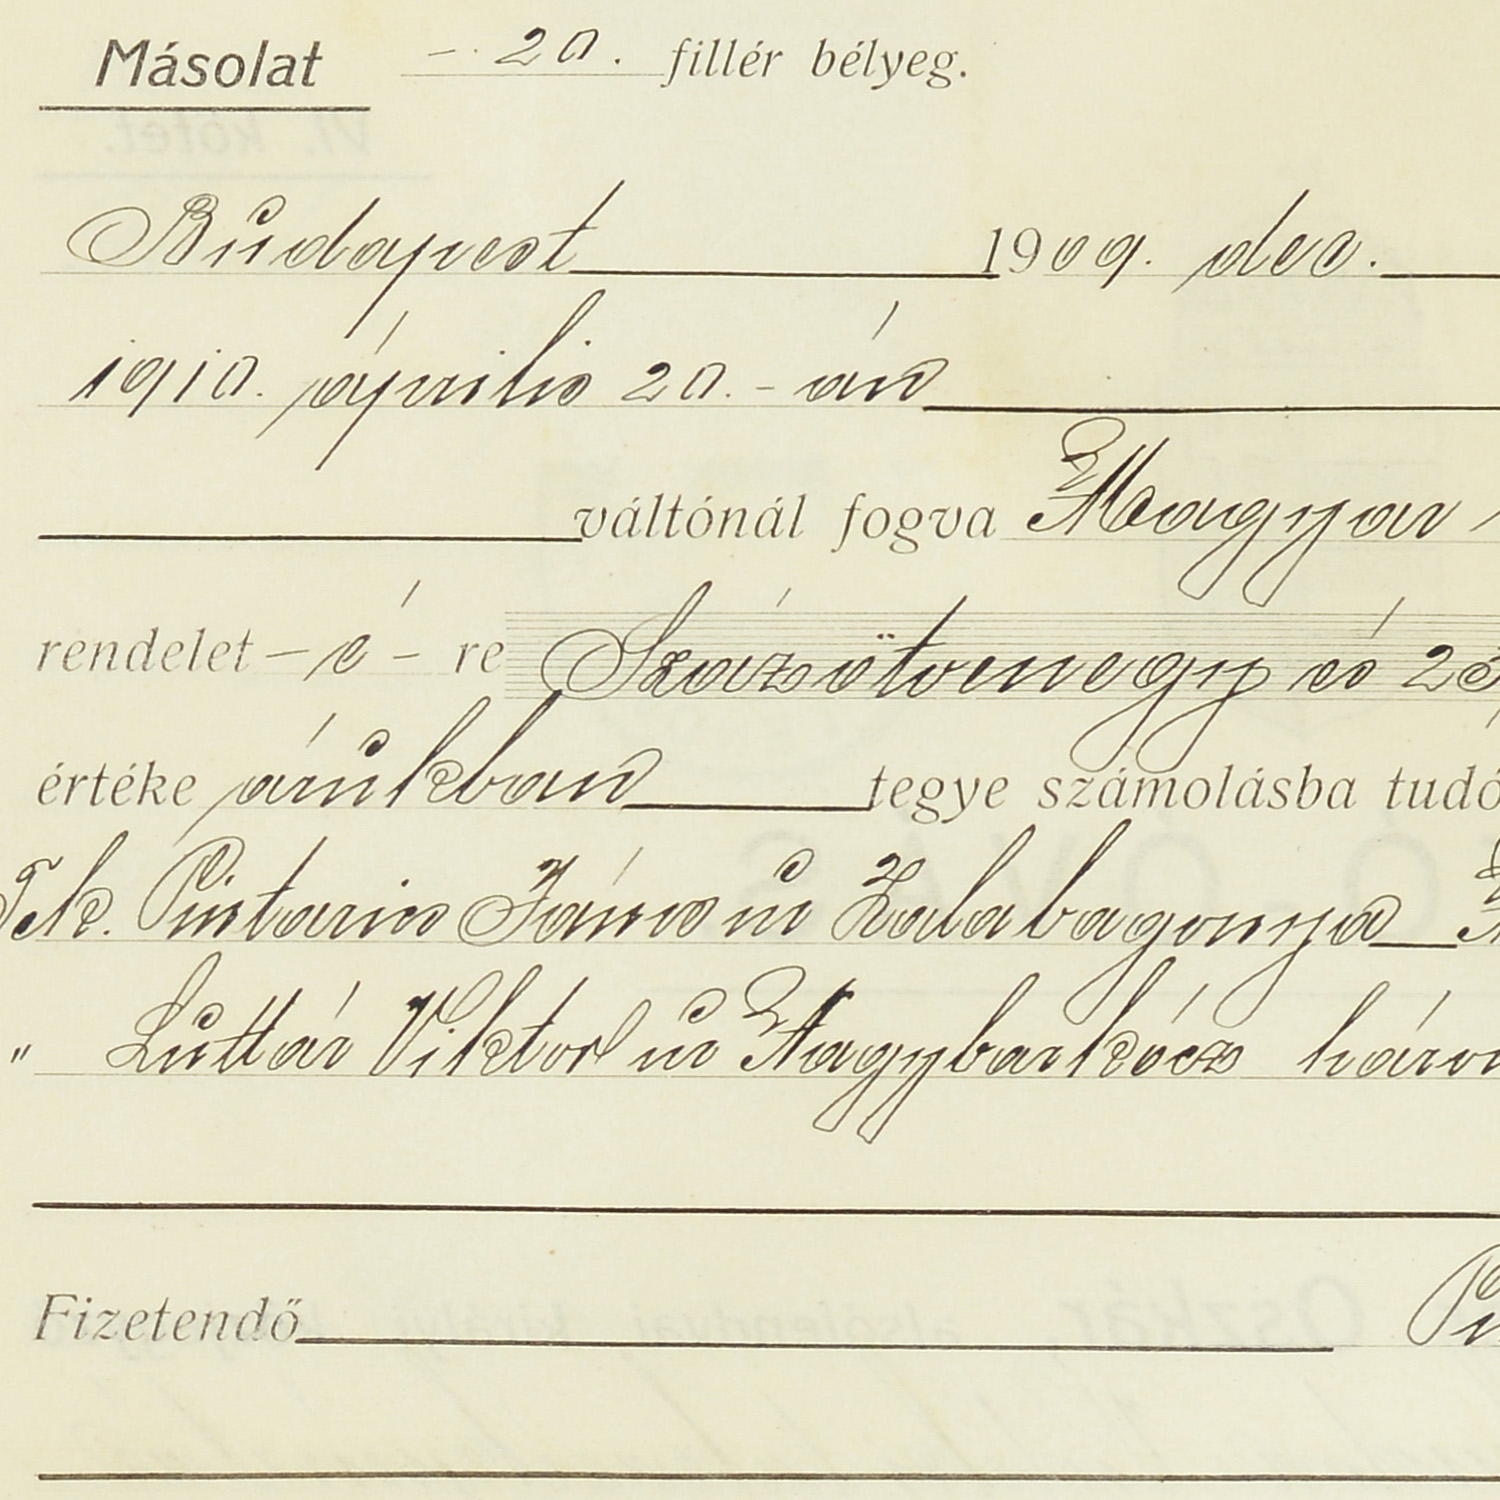 Másolat -. 20. fillér bélyeg.
Budapest 1909. dec.
1910. április 20. - án
váltónál fogva Magyar
rendelet - é - re Százötvenegy és 23
értéke árukban tegye számolásba tudó
Tek. Pintarics János úr Zalabagonya
" Luttár Viktor úr Nagybarkócz háro
Fizetendő